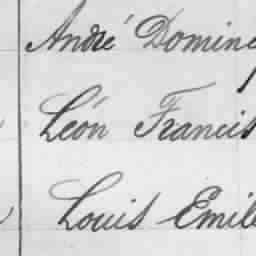 André Domin
Léon Francis
Louis Emil